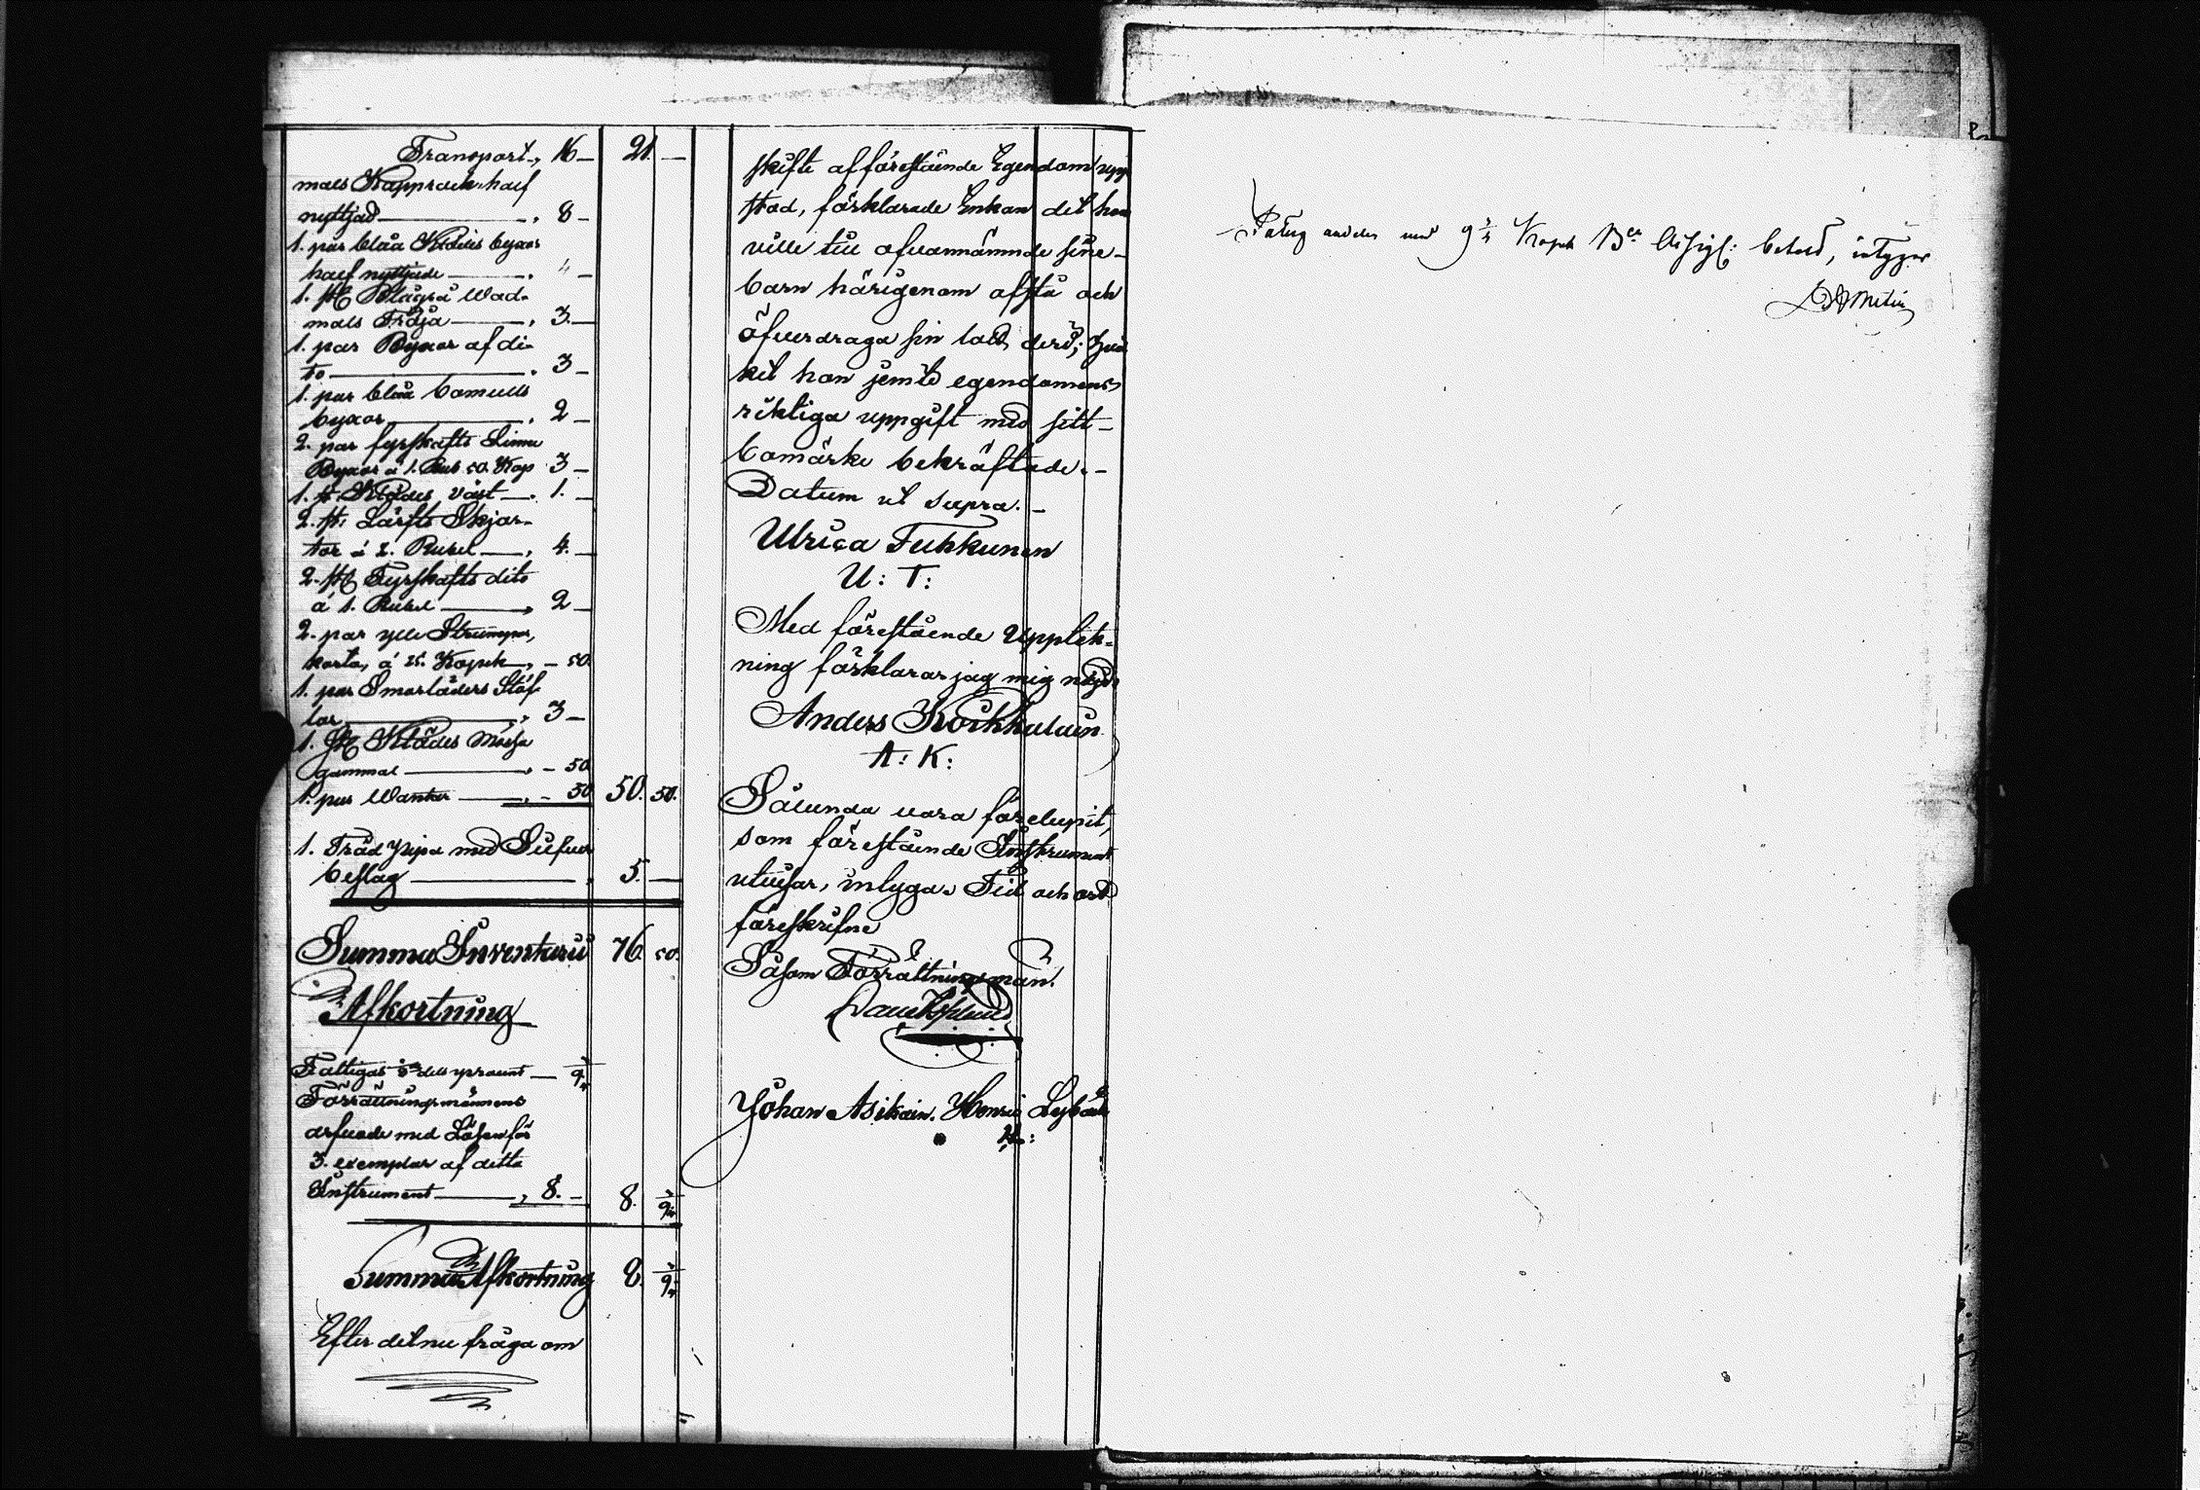 Transport „ 16 — 21. —
mals Kapprock half
nyttjad — „ 8 —
1. par blåa Klädes byxor
half nyttjade — „ 4 —
1. st Blågrå Wad-
mals Tröja — „ 3. —
1. par Byxor af di-
to — „ 3 —
1. par blåa bomulls
byxor — „ 2 —
2. par fyrskafts Linne
Byxor á 1. Rub 50. Kop 3 —
1. st. Klädes väst — „ 1. —
2. st. Lärfts Skjor-
tor á 2. Rubel — „ 4. —
2. st Fyrskafts dito
á 1. Rubel — „ 2 —
2. par ylle Strumpor,
korta, á 25. Kopek „ — 50.
1. par Smorläders Stöf-
lar — „ 3 —
1. st Klädes Mössa
gammal — „ — 50
1. par Wantar — „ — 50 50. 50.
1. Träd pipa med Silfver
beslag — „ 5. —
Summa Inventarii 76. 50.
Afkortning
Fattigas procent — 9 3/4
Förrättningsmännens
arfvode med Lösen för
3. exemplar af detta
Instrument — „ 8. — 8. 9 3/4
Summa Afkortning 8. 9 3/4
Efter det nu fråga om
skifte af förestående Egendom upp
stod, förklarade Enkan det hon
ville till ofvannämnde sine
barn härigenom afstå och
öfverdraga sin lott deri; hvil
ket hon jemte egendomens
riktiga uppgift med sitt
bomärke bekräftade. –
Datum ut supra. –
Ulrica Tuhkunen
U: T:
Med förestående Upptek-
ning förklarar jag mig nöjd
Anders Kockkulain
A: K:
Sålunda vara förelupit,
som förestående Instrument
utvisar, intyga. Tid och ort
föreskrifne
Såsom Förrättningsman.
Johan Asikain. Henric
H:
9 3/4 Kopek B:co Assign: betald, intygar